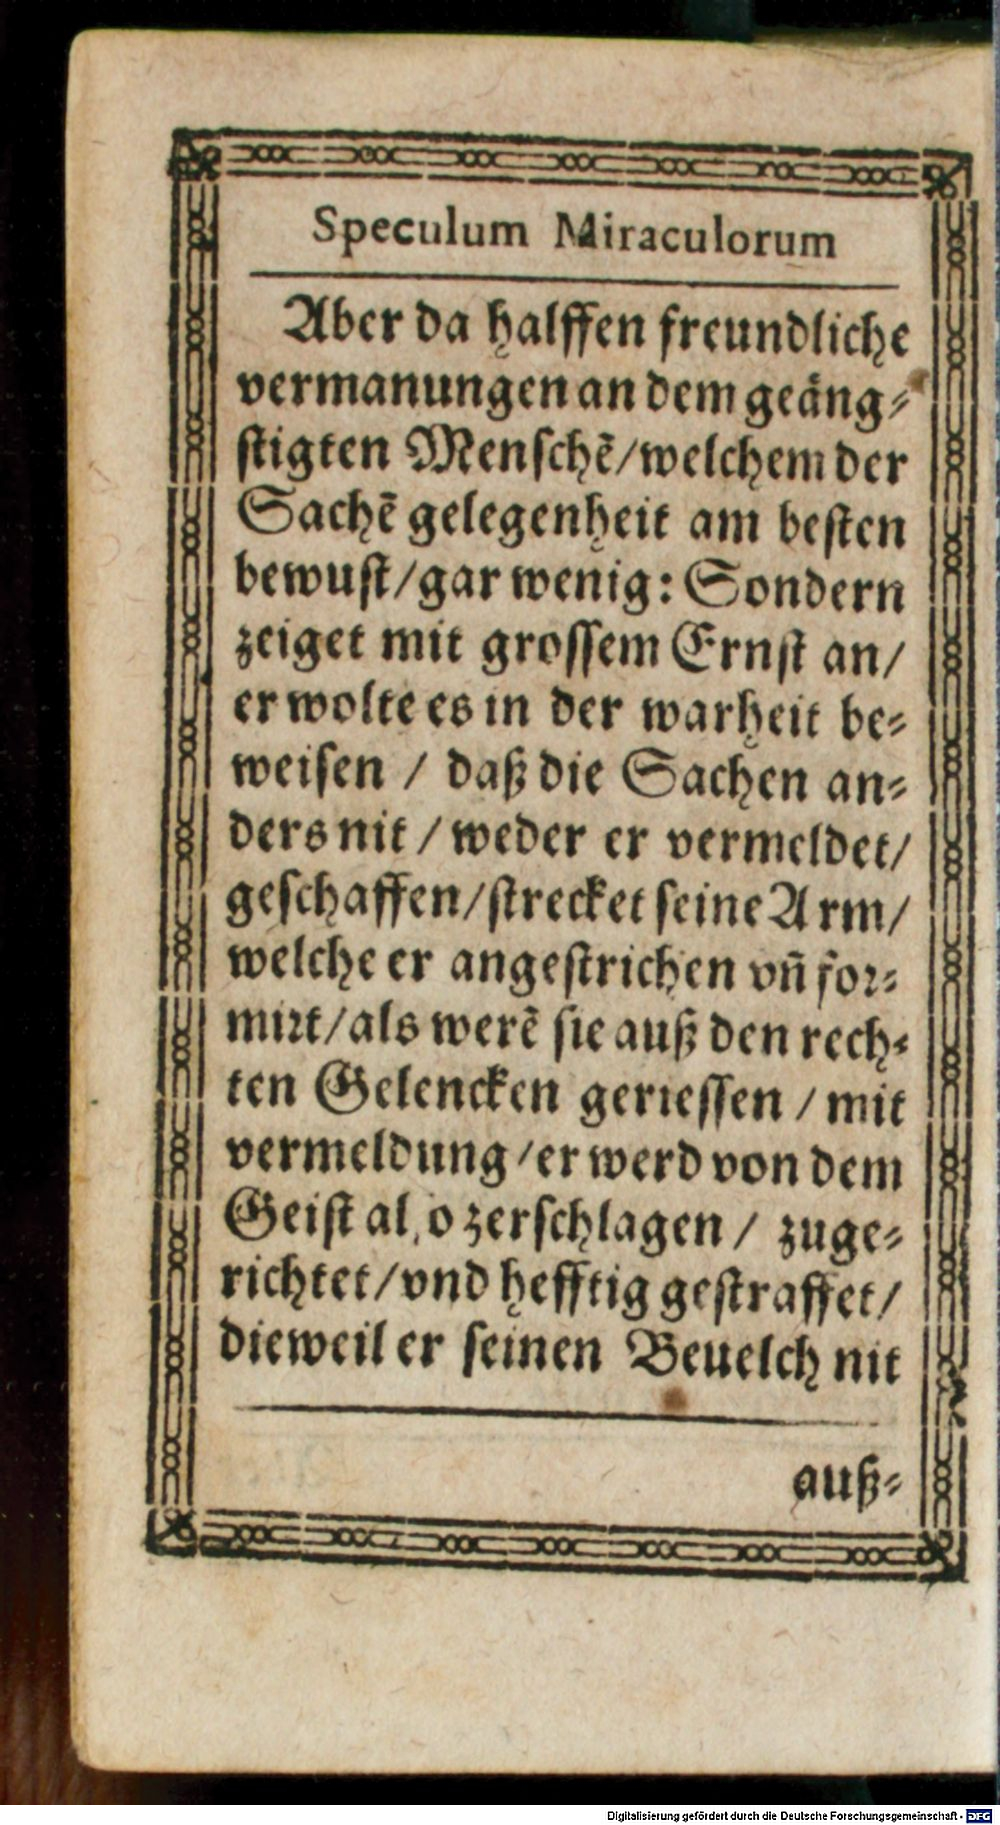 Speculum Miraculorum
Aber da halffen freundliche
vermanungen an dem geäng⸗
stigten Menschẽ/welchem der
Sachẽ gelegenheit am besten
bewust/gar wenig: Sondern
zeiget mit grossem Ernst an/
er wolte es in der warheit be⸗
weisen / daß die Sachen an⸗
ders nit / weder er vermeldet/
geschaffen/strecket seine Arm/
welche er angestrichen vñ for⸗
mirt/als werẽ sie auß den rech⸗
ten Gelencken geriessen / mit
vermeldung/er werd von dem
Geist also zerschlagen / zuge⸗
richtet/vnd hefftig gestraffet/
dieweil er seinen Beuelch nit
auß⸗
Digitalisierung gefördert durch die Deutsche Forschungsgemeinschaft - DFG